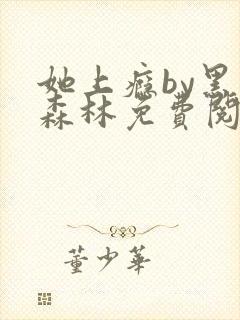 她上瘾by黑
森林免费阅
董少华